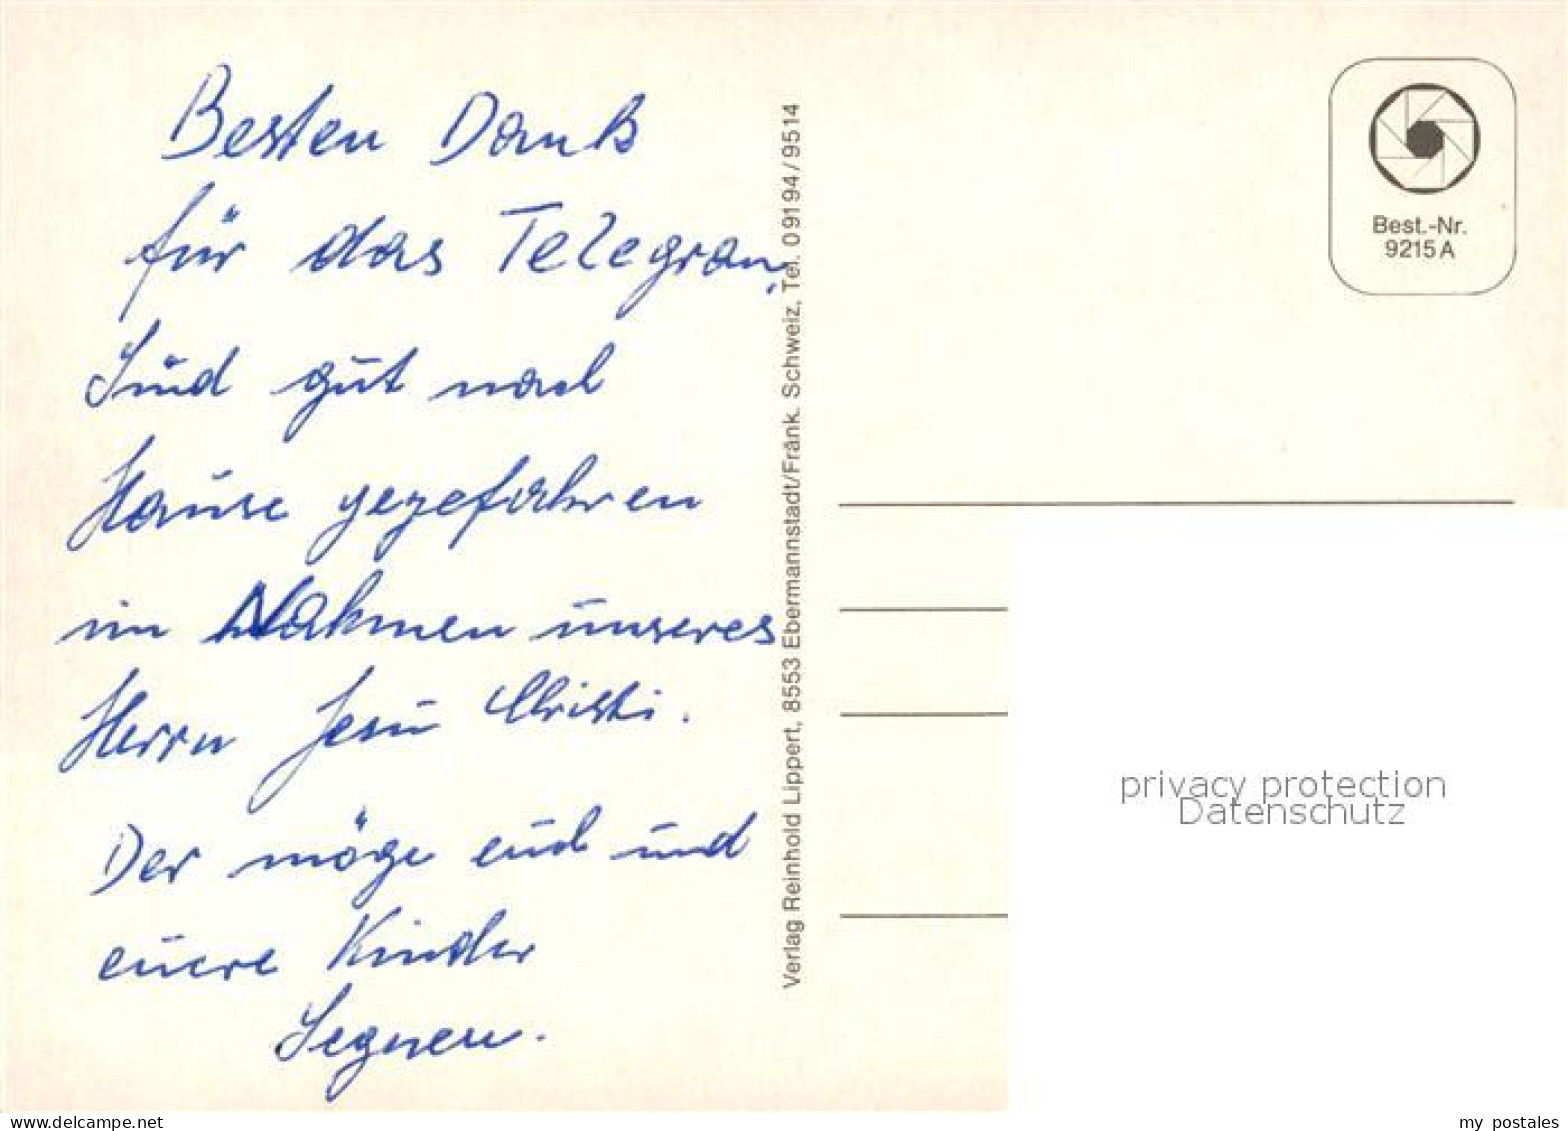 Besten Dank
für das Telegram,
Sind gut nach
Hause gezefahren
im Nahmen unseres
Herrn Jesu Christi.
Der möge euch und
euere Kinder
Segnen.
Verlag Reinhold Lippert, 8553 Ebermannstadt/Fränk. Schweiz, Tel. 09194/9514
Best.-Nr.
9215 A
privacy protection
Datenschutz
my postales